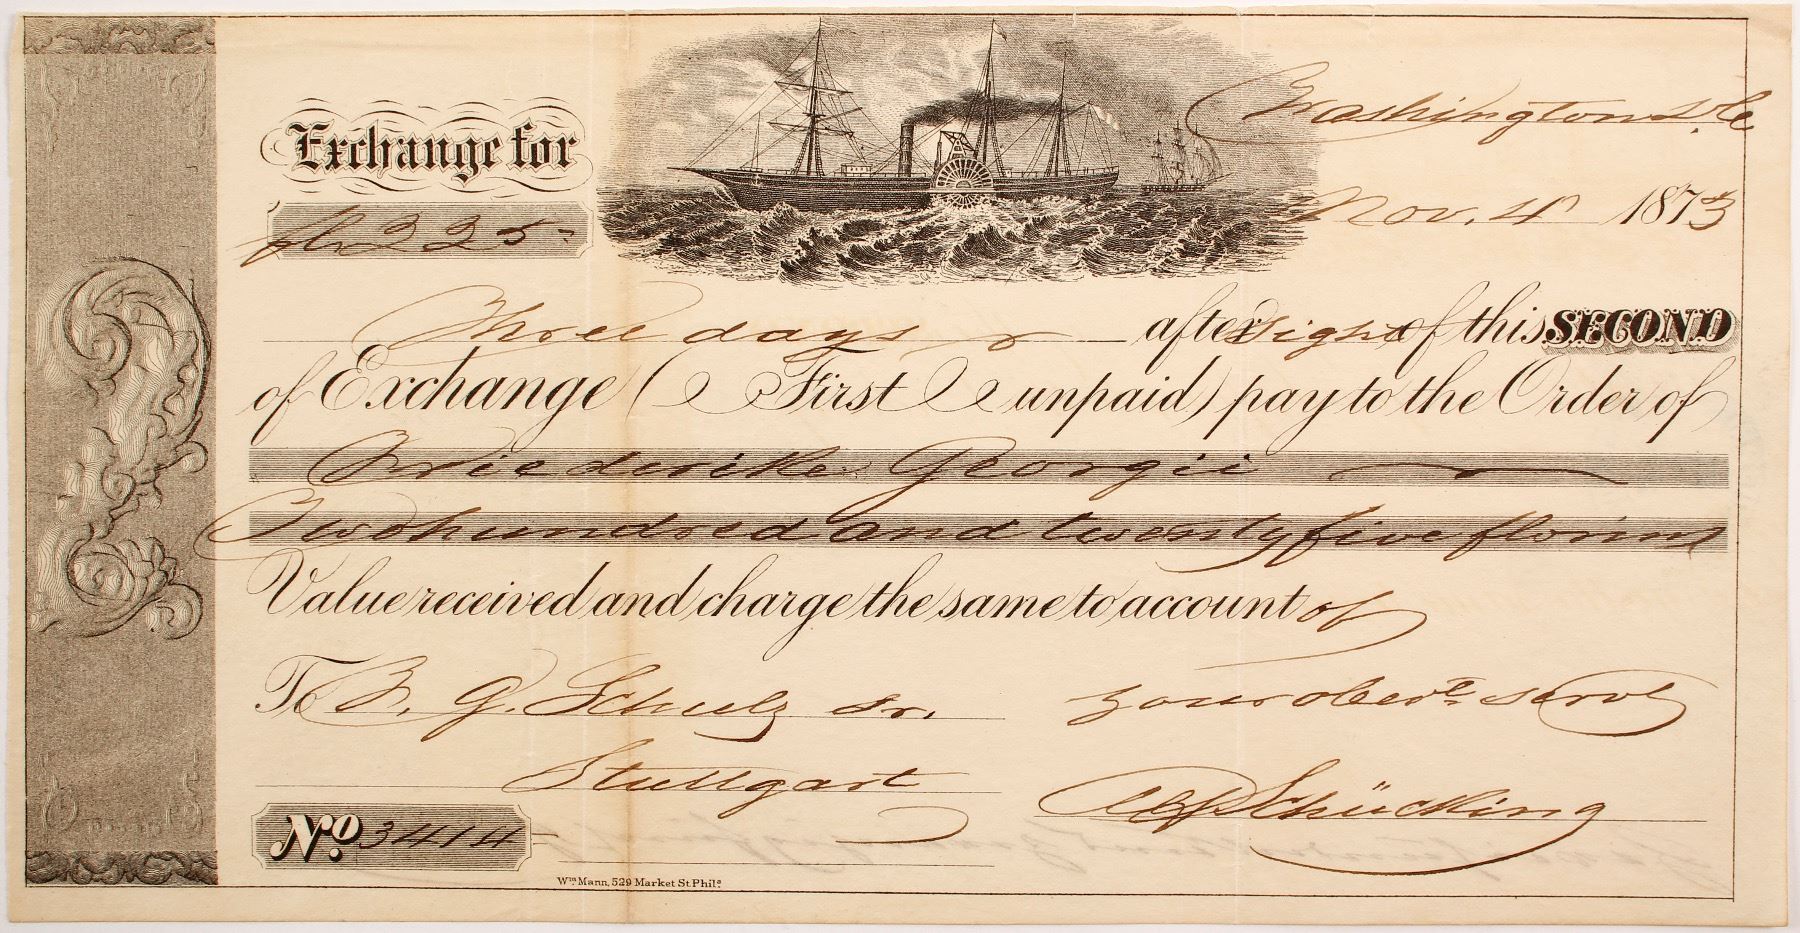 Exchange for
fls 225-
Washington D.C.
Nov. 4 1873
Three days after sight of this SECOND
of Exchange (First unpaid) pay to the Order of
Friederike Georgii
Two hundred and twenty five florins
Value received and charge the same to account of
To F. G. Schulz sr. your obedt servt
Stuttgart Schücking
No. 3414
Wm. Mann, 529 Market St Phila